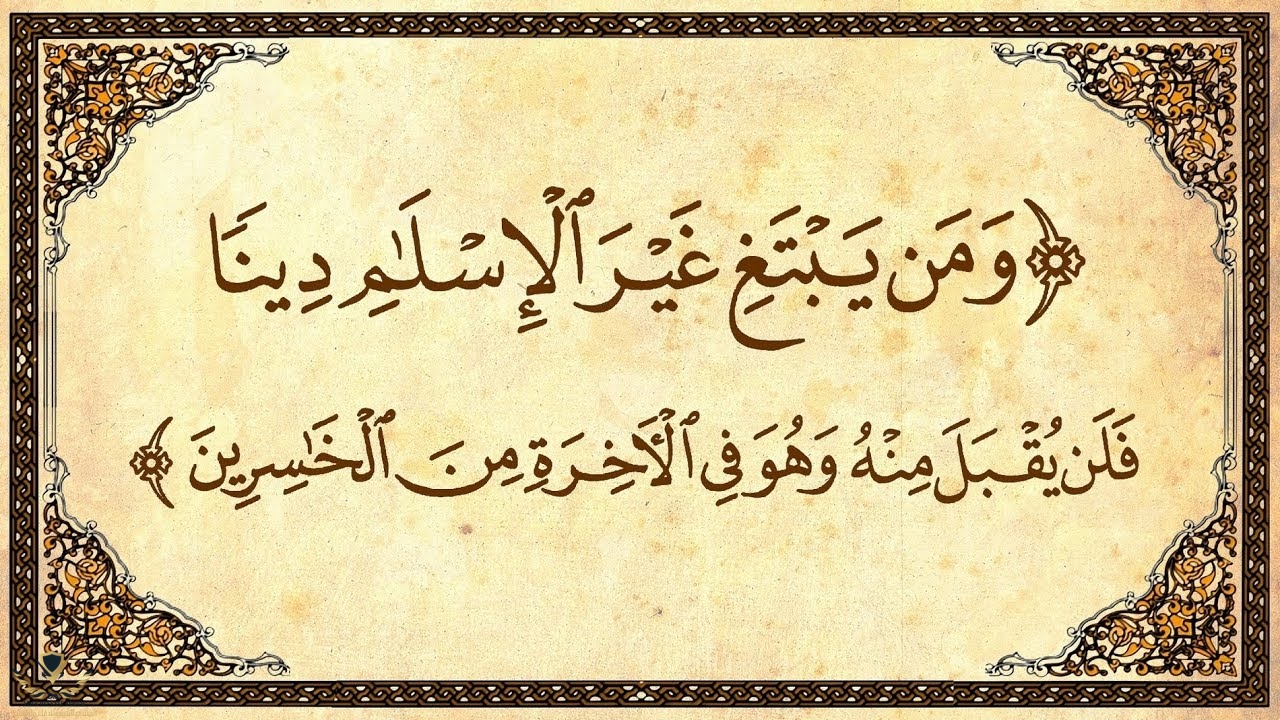 ﴿وَمَن يَبْتَغِ غَيْرَ ٱلْإِسْلَٰمِ دِينَا
فَلَن يُقْبَلَ مِنْهُ وَهُوَ فِي ٱلْأَخِرَةِ مِنَ ٱلْخَٰسِرِينَ﴾